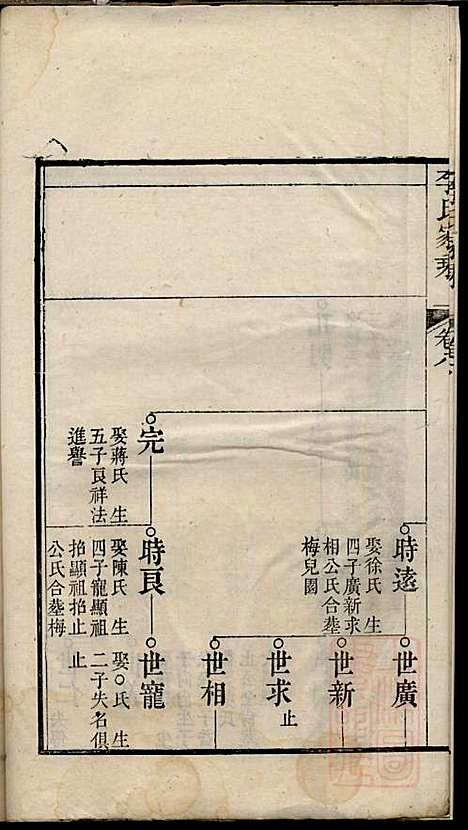 李氏家乘
卷六
時遠
娶徐氏 生
四子廣新求
相公氏合塟
梅兒園
世廣
世新
世求
止
世相
完
娶蔣氏 生
五子良祥法
進譽
時良
娶陳氏 生
四子寵顯祖
招顯祖招止
公氏合塟梅
世寵
娶○氏 生
二子失名俱
止